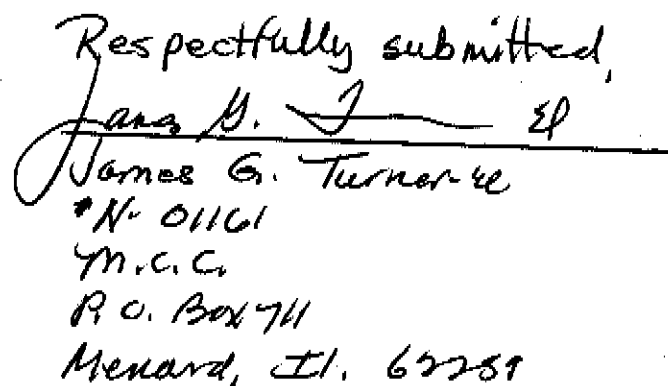 Respectfully submitted,
James G. T El
James G. Turner-El
#N-01161
M.C.C.
P.O. Box 711
Menard, Il. 62259